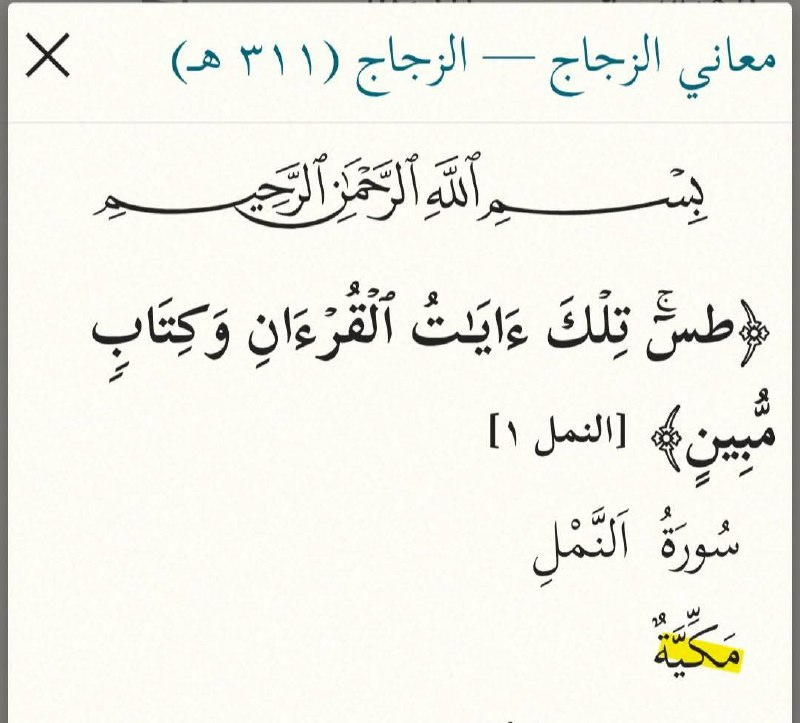 معاني الزجاج — الزجاج (٣١١ هـ)
بِسْمِ ٱللَّهِ ٱلرَّحْمَٰنِ ٱلرَّحِيمِ
﴿طسٓۚ تِلْكَ ءَايَـٰتُ ٱلْقُرْءَانِ وَكِتَابٍ
مُّبِينٍ﴾ [النمل ١]
سُورَةُ اَلنَّمْلِ
مَكِّيَّةٌ